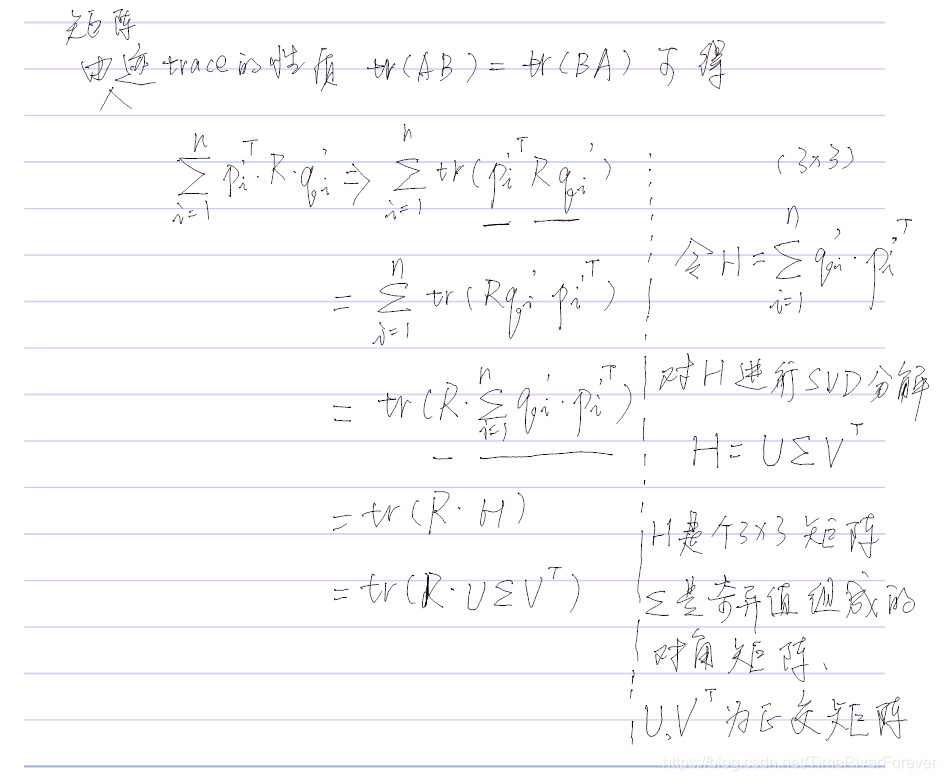 矩阵
由迹trace的性质 tr(AB) = tr(BA) 可得
n n
∑ pi'^T · R · qi' ⇒ ∑ tr(pi'^T R qi')
i=1 i=1
n
= ∑ tr(R qi' pi'^T)
i=1
n
= tr(R · ∑ qi' · pi'^T)
i=1
= tr(R · H)
= tr(R · U Σ V^T)
(3×3)
n
令 H = ∑ qi' · pi'^T
i=1
对H进行SVD分解
H = U Σ V^T
H是个3×3矩阵
Σ是奇异值组成的
对角矩阵、
U,V^T为正交矩阵
https://blog.csdn.net/TimeRiverForever